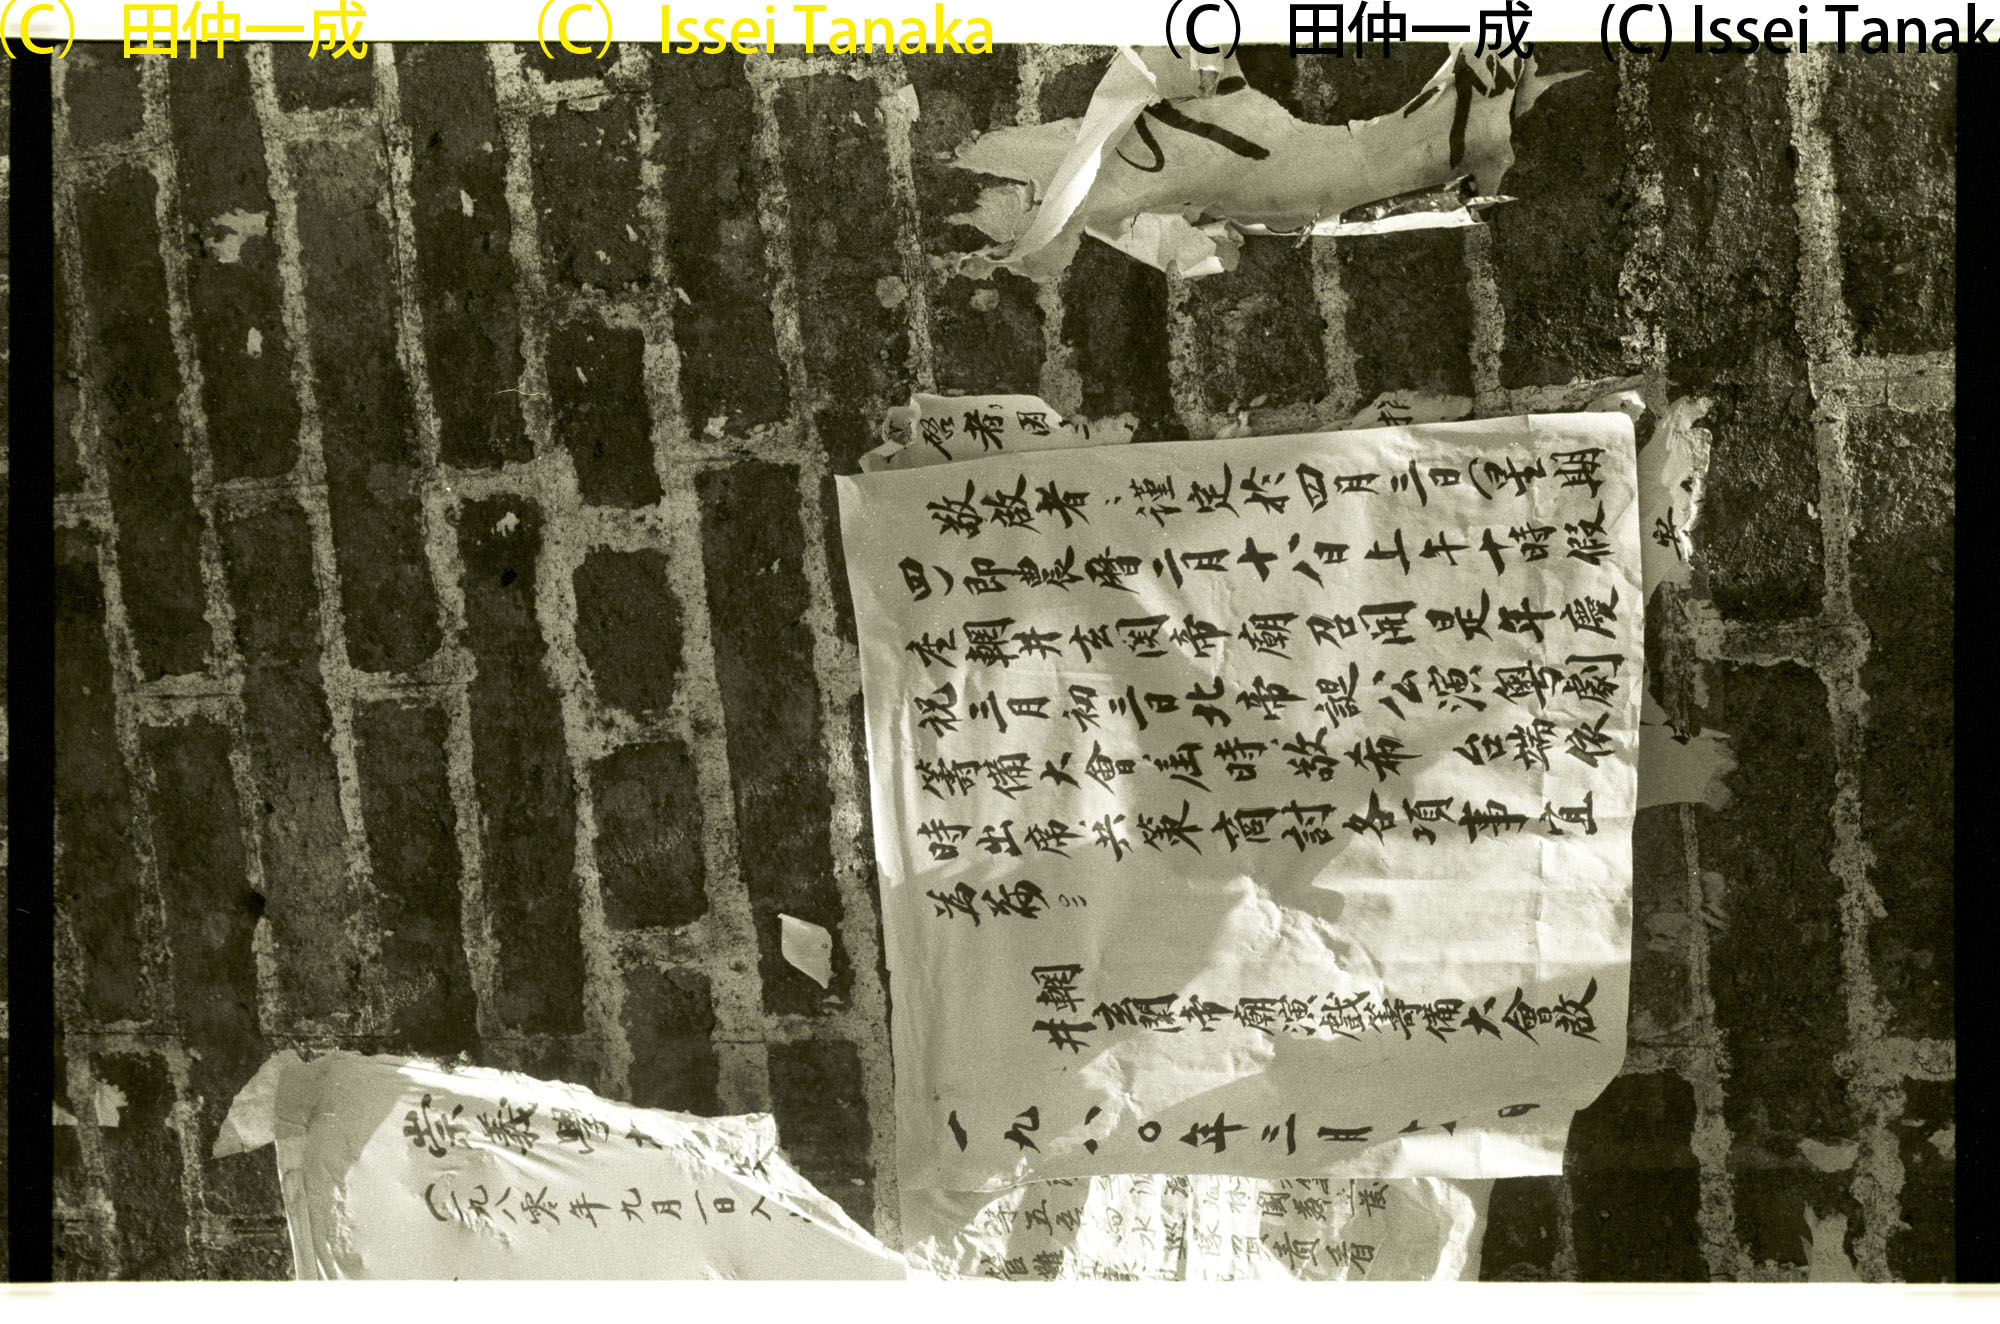 (C) 田仲一成 (C) Issei Tanaka (C) 田仲一成 (C) Issei Tanak
啓者
敬啟者:謹定於四月三日(星期
四)即農曆二月十八日上午十時假
座輞井玄関帝廟召開是年慶
祝三月初三日北帝誕公演粵劇
籌備大會,屆時敬希 台端依
時出席,共策商討各項事宜
為荷。
輞井玄關帝廟演戲籌備大會啟
一九八〇年三月 日
崇義學
(一九八零年九月一日